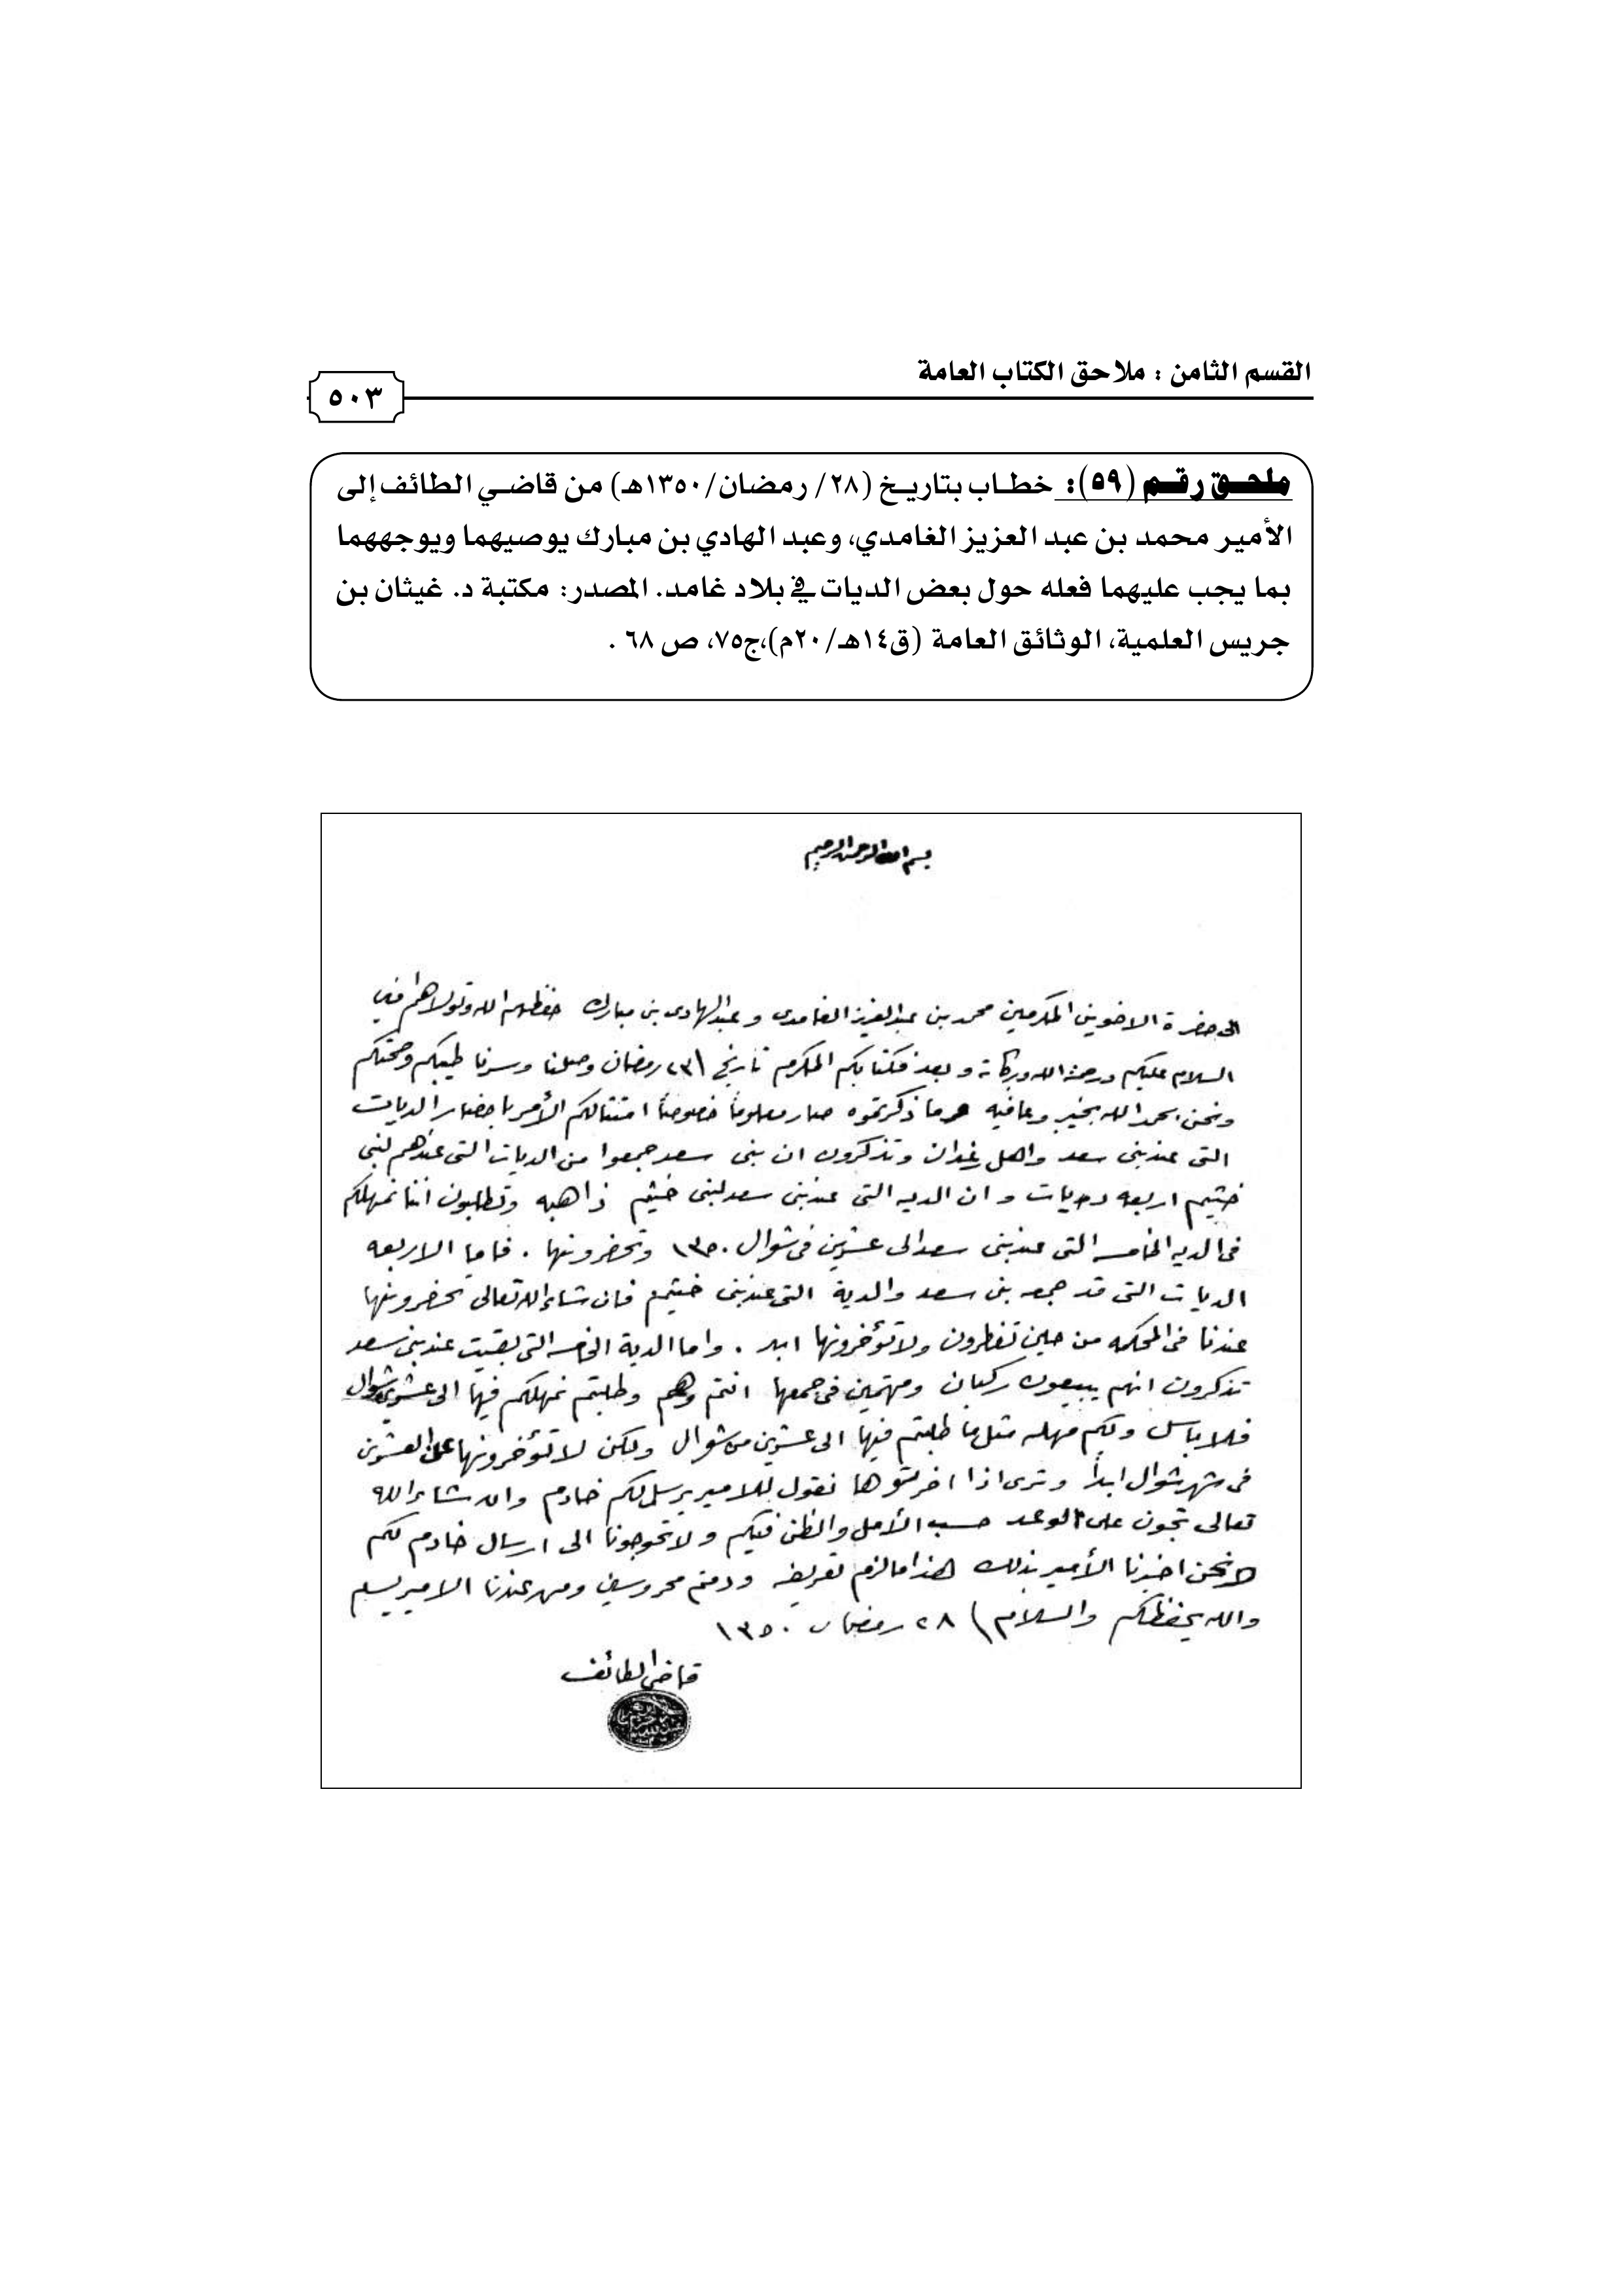 القسم الثامن : ملاحق الكتاب العامة
٥٠٣
ملحق رقم (٥٩): خطاب بتاريخ (٢٨/ رمضان/١٣٥٠هـ) من قاضي الطائف إلى
الأمير محمد بن عبد العزيز الغامدي، وعبد الهادي بن مبارك يوصيهما ويوجههما
بما يجب عليهما فعله حول بعض الديات في بلاد غامد. المصدر: مكتبة د. غيثان بن
جريس العلمية، الوثائق العامة (ق١٤هـ/٢٠م)،ج٧٥، ص ٦٨ .
بسم الله الرحمن الرحيم
الى حضرة الاخوين المكرمين محمد بن عبدالعزيز الغامدى و عبدالهادى بن مبارك حفظهم الله وتولاهم امين
السلام عليكم ورحمة الله وبركاته وبعد فكتابكم المكرم تاريخ ٢٣ رمضان وصلنا وسرنا طيبكم وصحتكم
ونحن بحمد الله بخير وعافيه وما ذكرتموه صار معلوماً خصوصاً امتثالكم الأمر باحضار الديات
التى عند بنى سعد واهل رغدان وتذكرون ان بنى سعد جمعوا من الديات التى عندهم لبنى
خثيم اربعه ديات وان الديه التى عند بنى سعد لبنى خثيم ذاهبه وتطلبون اننا نمهلكم
فى الديه الخامسه التى عند بنى سعد الى عشرين فى شوال ١٣٥٠ وتحضرونها . فاما الاربعه
الديات التى قد جمعه بنى سعد والدية التى عند بنى خثيم فان شاء الله تعالى تحضرونها
عندنا فى المحكمه من حين تفطرون ولا تؤخرونها ابد . واما الدية الخامسه التى بقيت عند بنى سعد
تذكرون انهم يبيعون ركبان ومهتمين فى جمعها انتم وهم وطلبتم نمهلكم فيها الى عشرين شوال
فلا باس ولكم مهله مثل ما طلبتم فيها الى عشرين من شوال ولكن لا تؤخرونها على العشرين
فى شهر شوال ابداً وترى اذا اخرتوها نقول للامير يرسل لكم خادم وان شاء الله
تعالى تجون على الوعد حسب الأمل والظن فيكم ولا تحوجونا الى ارسال خادم لكم
ونحن اخبرنا الأمير بذلك هذا ما لزم تعريفه ودمتم محروسين ومن عندنا الامير يسلم
والله يحفظكم والسلام ٢٨ رمضان ١٣٥٠
قاضى الطائف